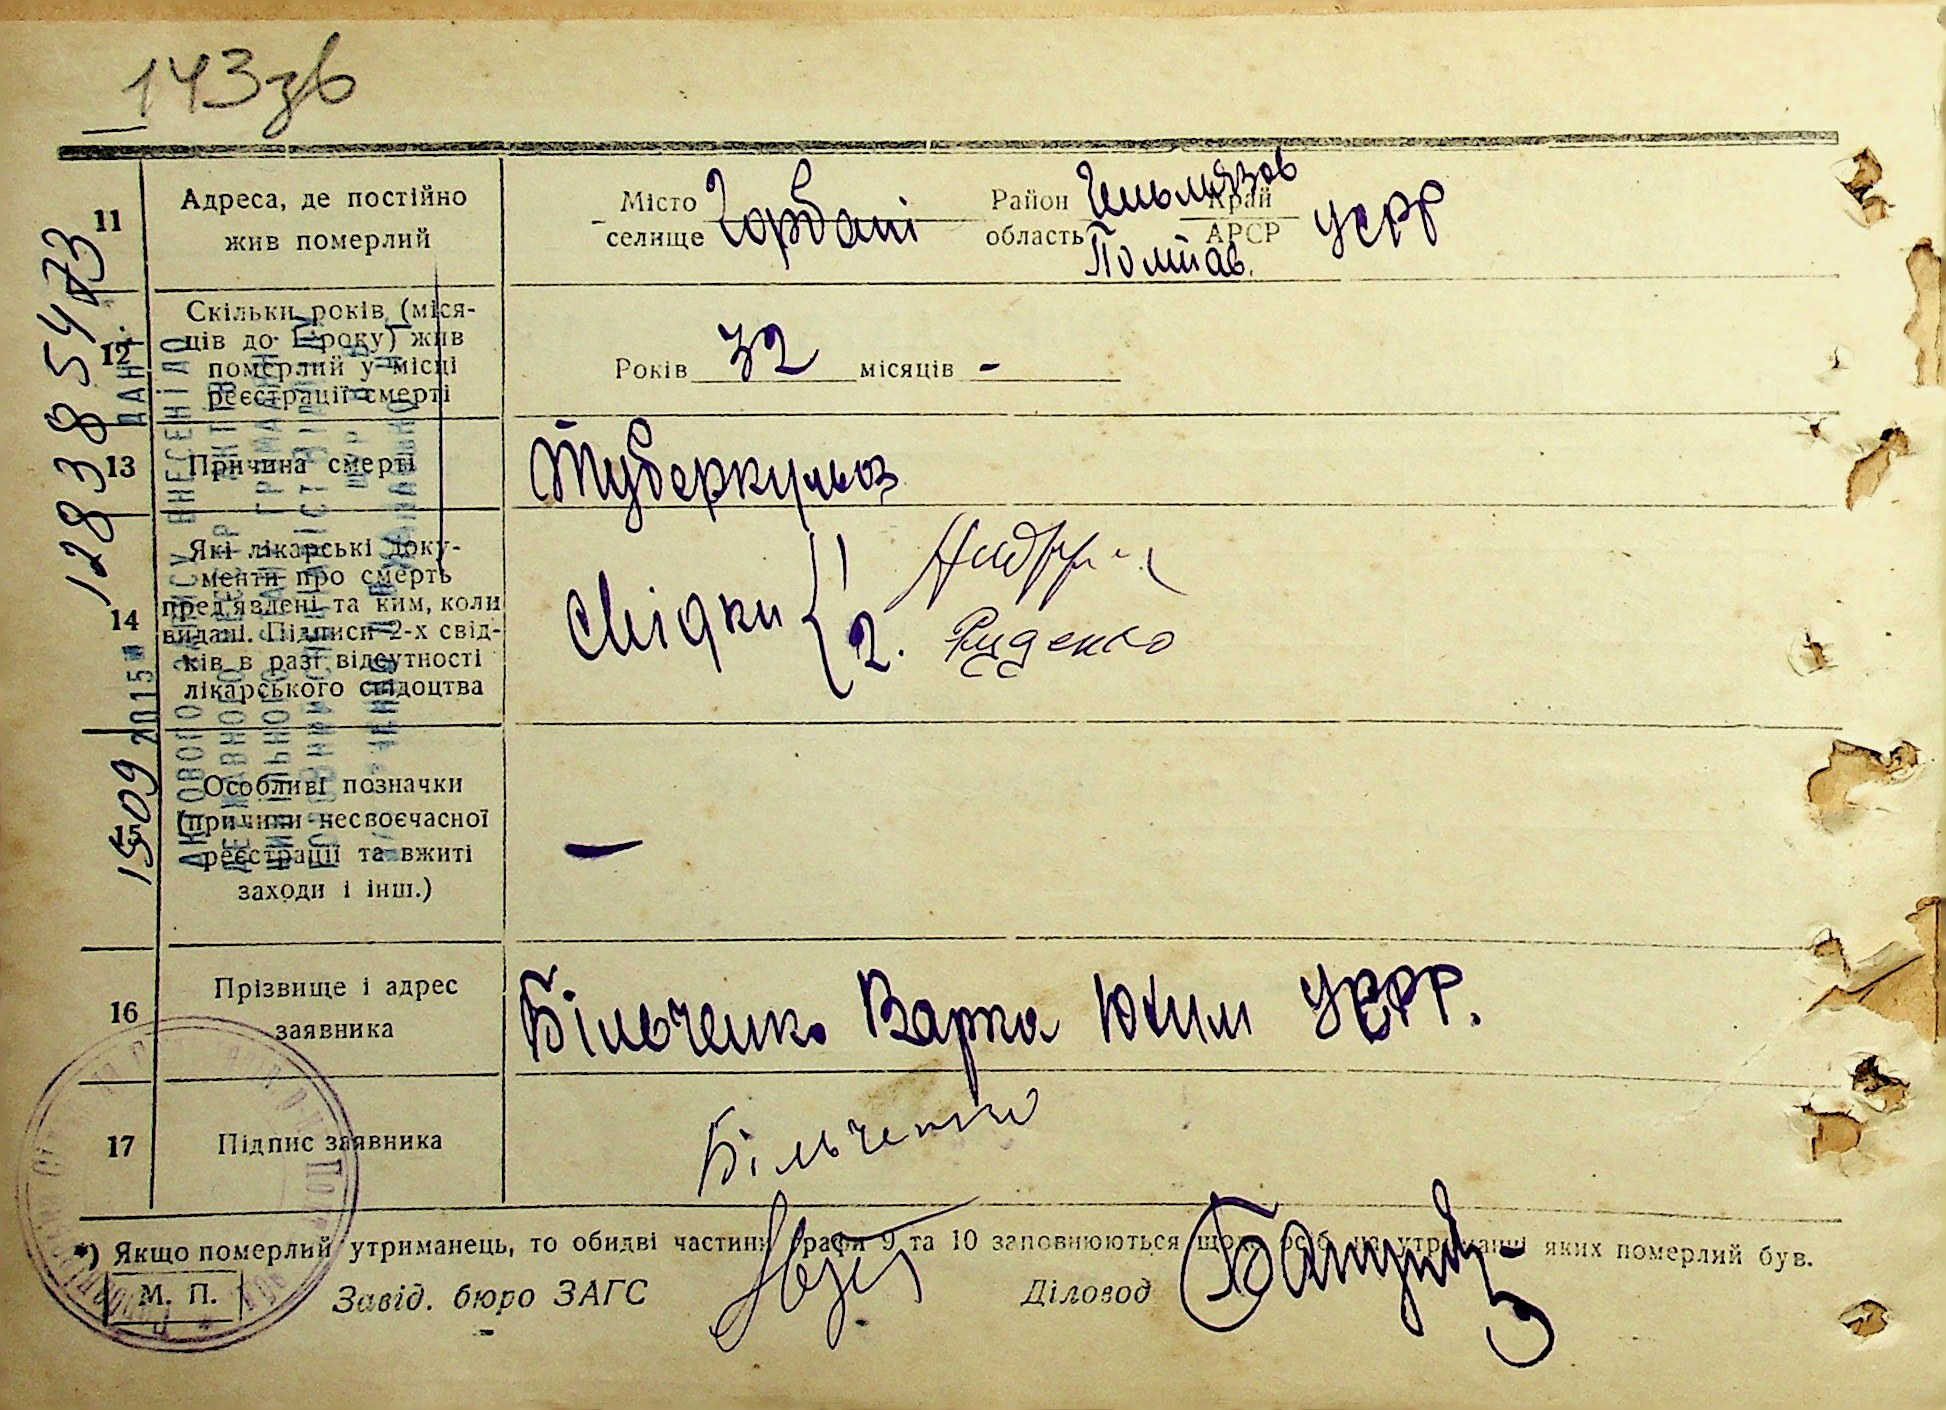 143зв
11 Адреса, де постійно жив померлий
Місто селище Горбані Район область Гельмязов Полтав. Край АРСР УСРР
12 Скільки років (місяців до 1 року) жив померлий у місці реєстрації смерті
Років 32 місяців -
13 Причина смерті
Туберкульоз
14 Які лікарські документи про смерть пред'явлені та ким, коли видані. Підписи 2-х свідків в разі відсутності лікарського свідоцтва
Свідки 1
2. Руденко
15 Особливі позначки (причини несвоєчасної реєстрації та вжиті заходи і інш.)
—
16 Прізвище і адрес заявника
Більченко Варка Юхим УСРР.
17 Підпис заявника
Більченко
*) Якщо померлий утриманець, то обидві частини графи 9 та 10 заповнюються щодо осіб, на утриманні яких померлий був.
М. П.
Завід. бюро ЗАГС
Діловод
15 09 2015
128385473
АКТОВОГО ЗАПИСУ ВНЕСЕНІ ДО
ДАНІ